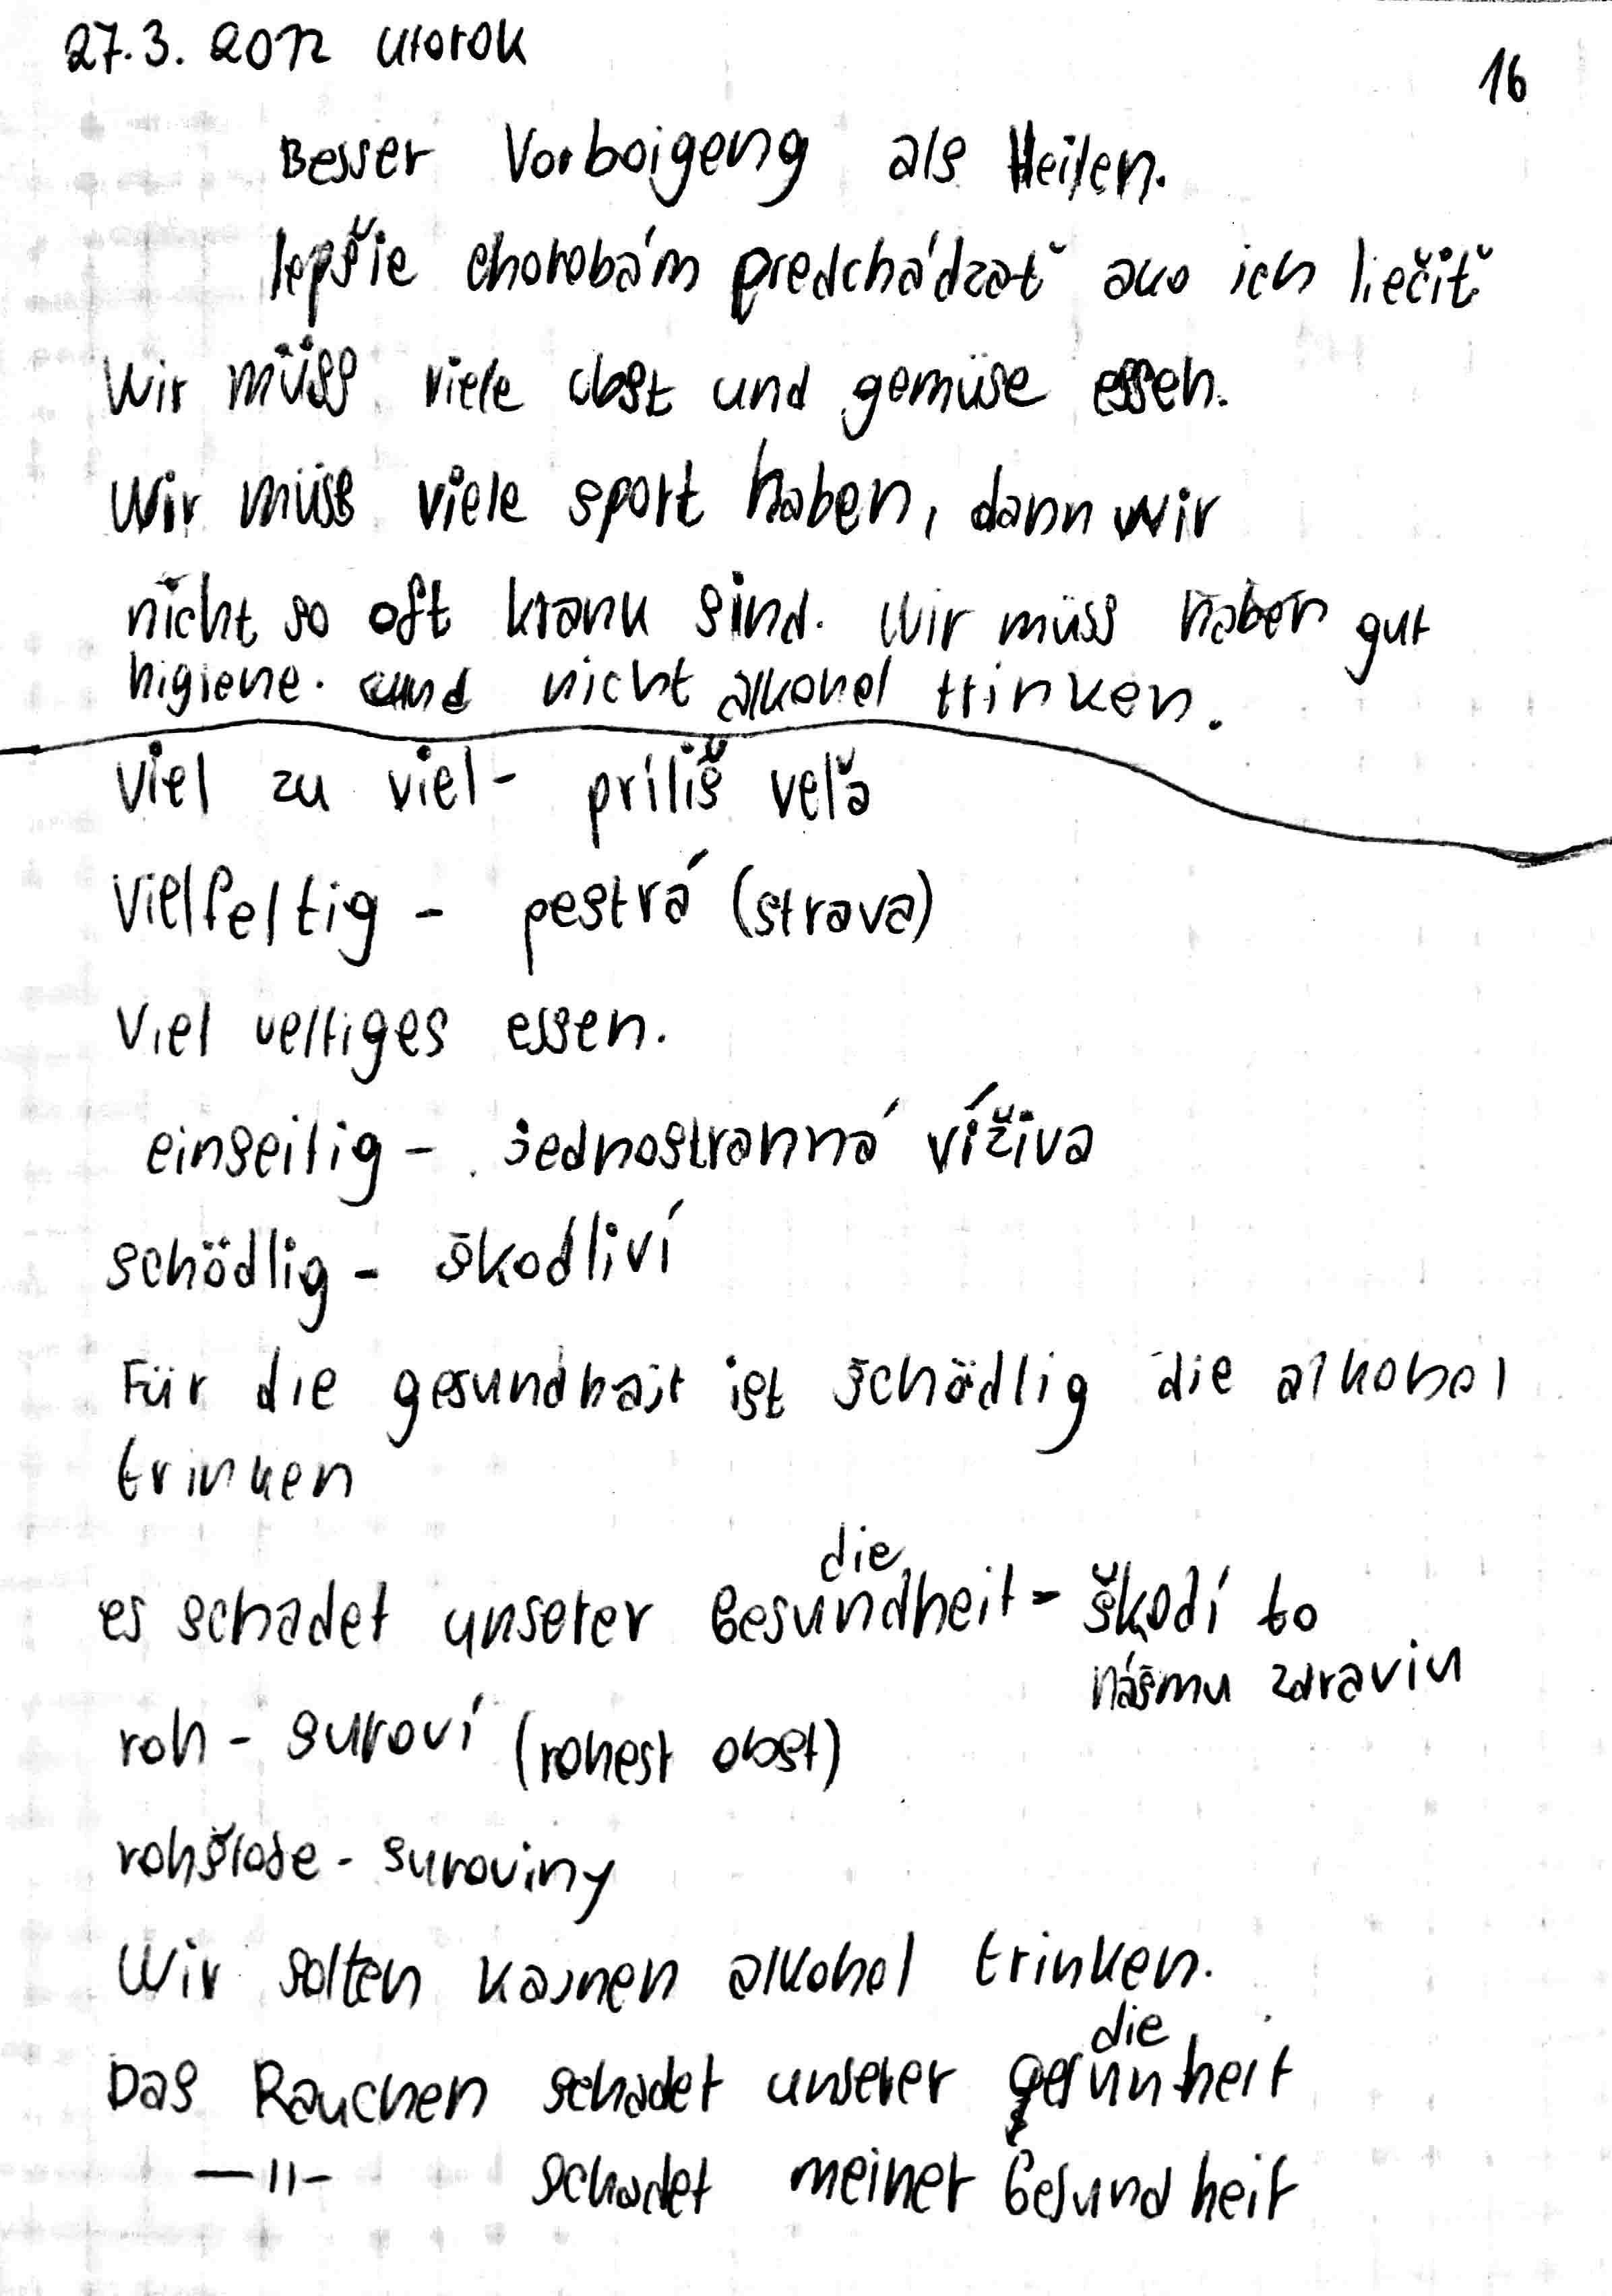 27.3. 2012 utorok
16
Besser Vorboigeng als Heilen.
lepšie chorobám predchádzať ako ich liečiť
Wir müss viele obst und gemüse essen.
Wir müss viele sport haben, dann wir
nicht so oft krank sind. Wir müss haben gut
higiene. und nicht alkohol trinken.
viel zu viel - príliš veľa
vielfeltig - pestrá (strava)
Viel veltiges essen.
einseitig - jednostranná víživa
schödlig - škodliví
Für die gesundhajt ist schödlig die alkohol
trinken
die
es schadet unserer Gesundheit - škodí to
nášmu zdraviu
roh - suroví (rohest obst)
rohštofe - suroviny
Wir solten kajnen alkohol trinken.
die
Das Rauchen schadet unserer gesunheit
—11- schadet meiner Gesundheit